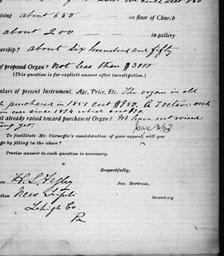 sising about 650 on floor of Church
about 200 in gallery
nbership? about Six hundred and fifty
of proposed Organ? Not less than $3000
(This question is for explicit answer after investigation.)
ulars of present Instrument, Age, Price, Etc. The organ is old
purchased in 1851 cost $950.
t already raised toward purchase of Organ? We have not raised
yet.
To facilitate Mr. Carnegie's consideration of your appeal, will you
ge by filling in the above?
Precise answer to each question is necessary.
Respectfully,
Jas. Bertram,
Secretary
New Tripoli
Lehigh Co.
Pa